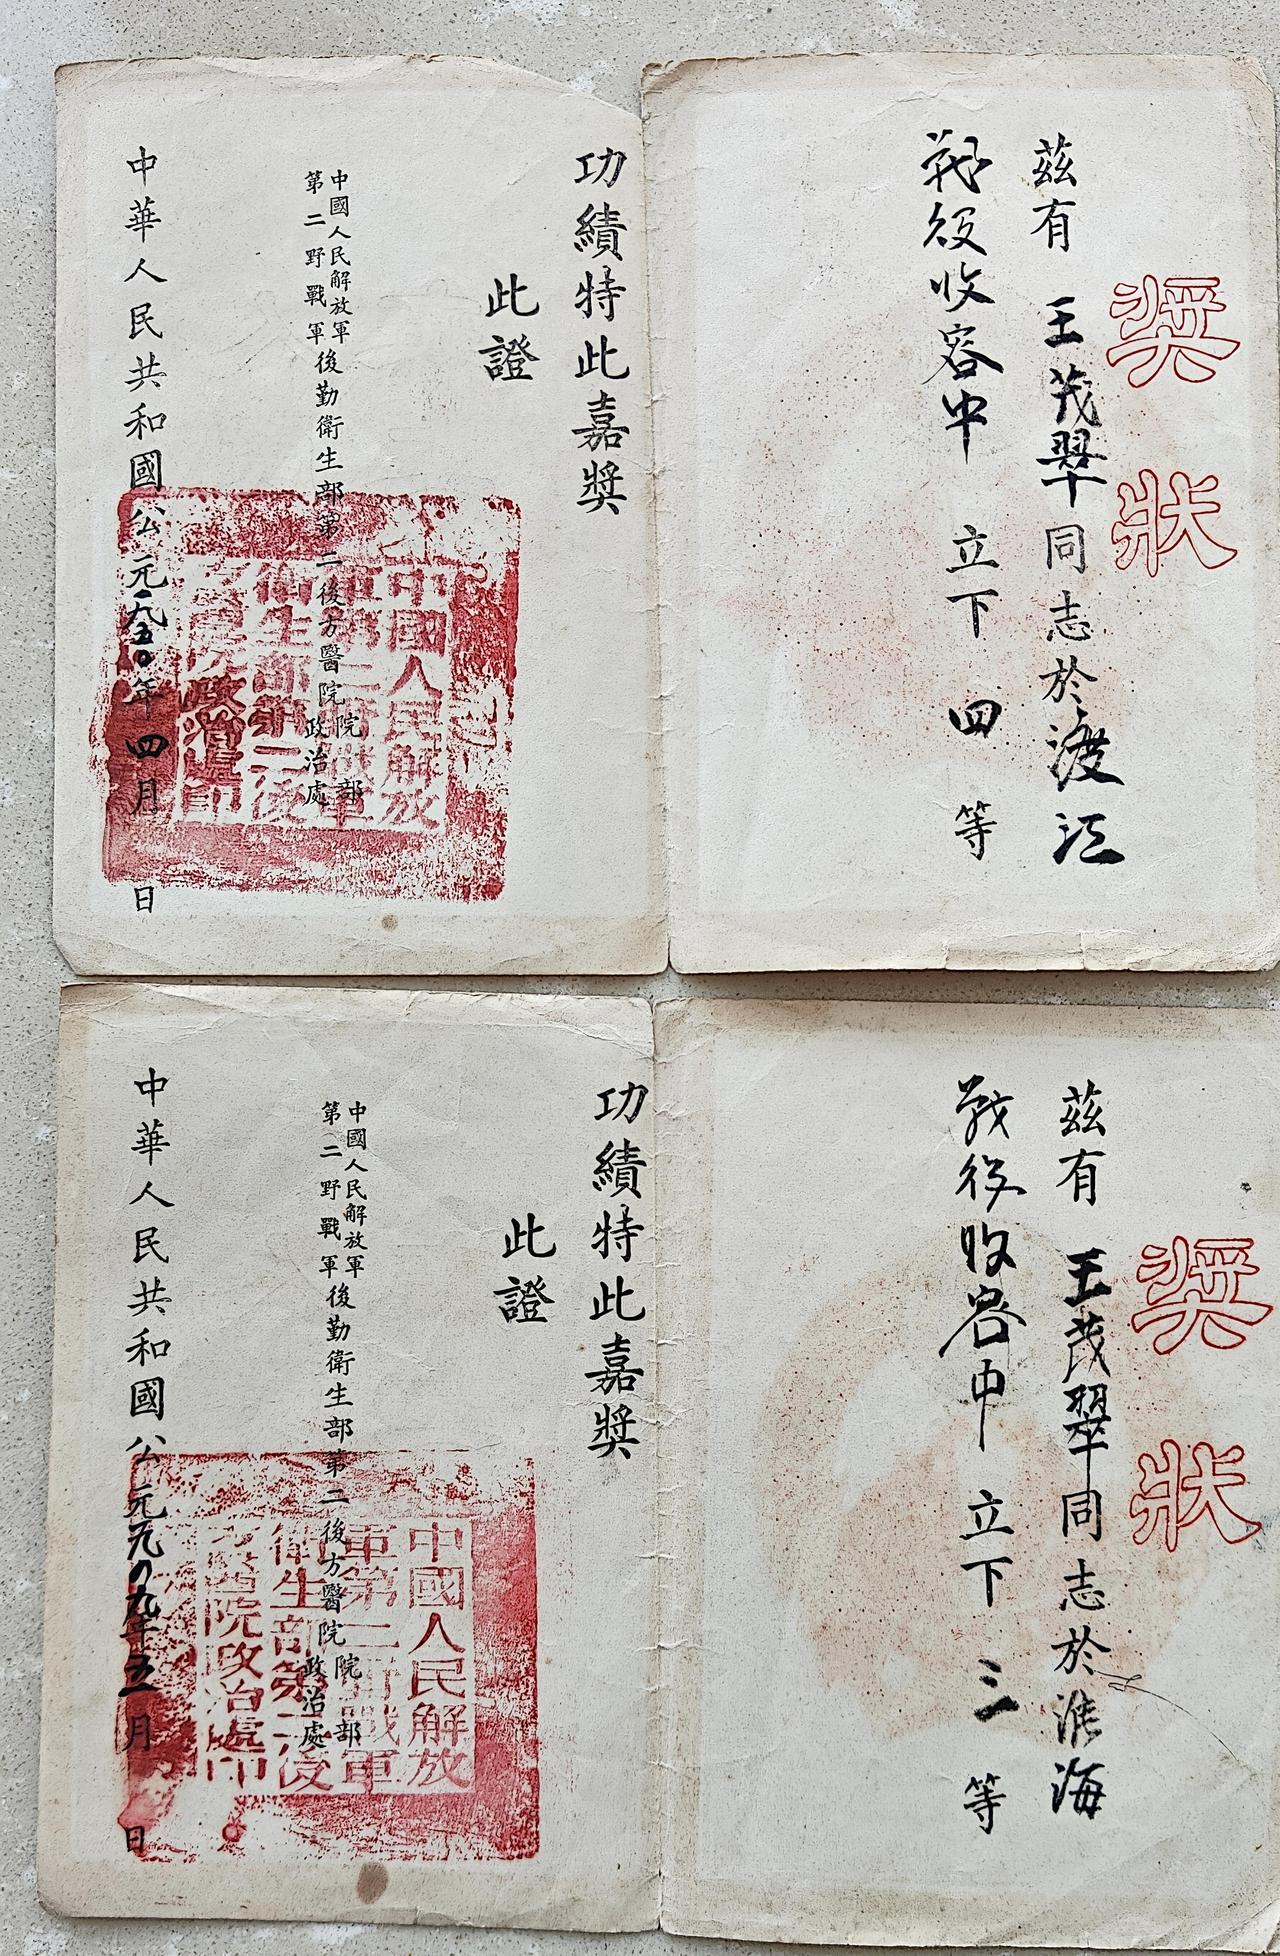 奖狀
茲有 王茂翠同志於渡江
战役收容中 立下 四 等
功績特此嘉獎
此證
中國人民解放軍
第二野戰軍
後勤衛生部第二後方醫院
院 部
政治處
中國人民解放
軍第二野戰軍
衛生部第二後
方醫院政治處印
中華人民共和國公元一九五〇年四月 日
奖狀
茲有 王茂翠同志於淮海
战役收容中 立下 三 等
功績特此嘉獎
此證
中國人民解放軍
第二野戰軍
後勤衛生部第二後方醫院
院 部
政治處
中國人民解放
軍第二野戰軍
衛生部第二後
方醫院政治處印
中華人民共和國公元 九年五月 日